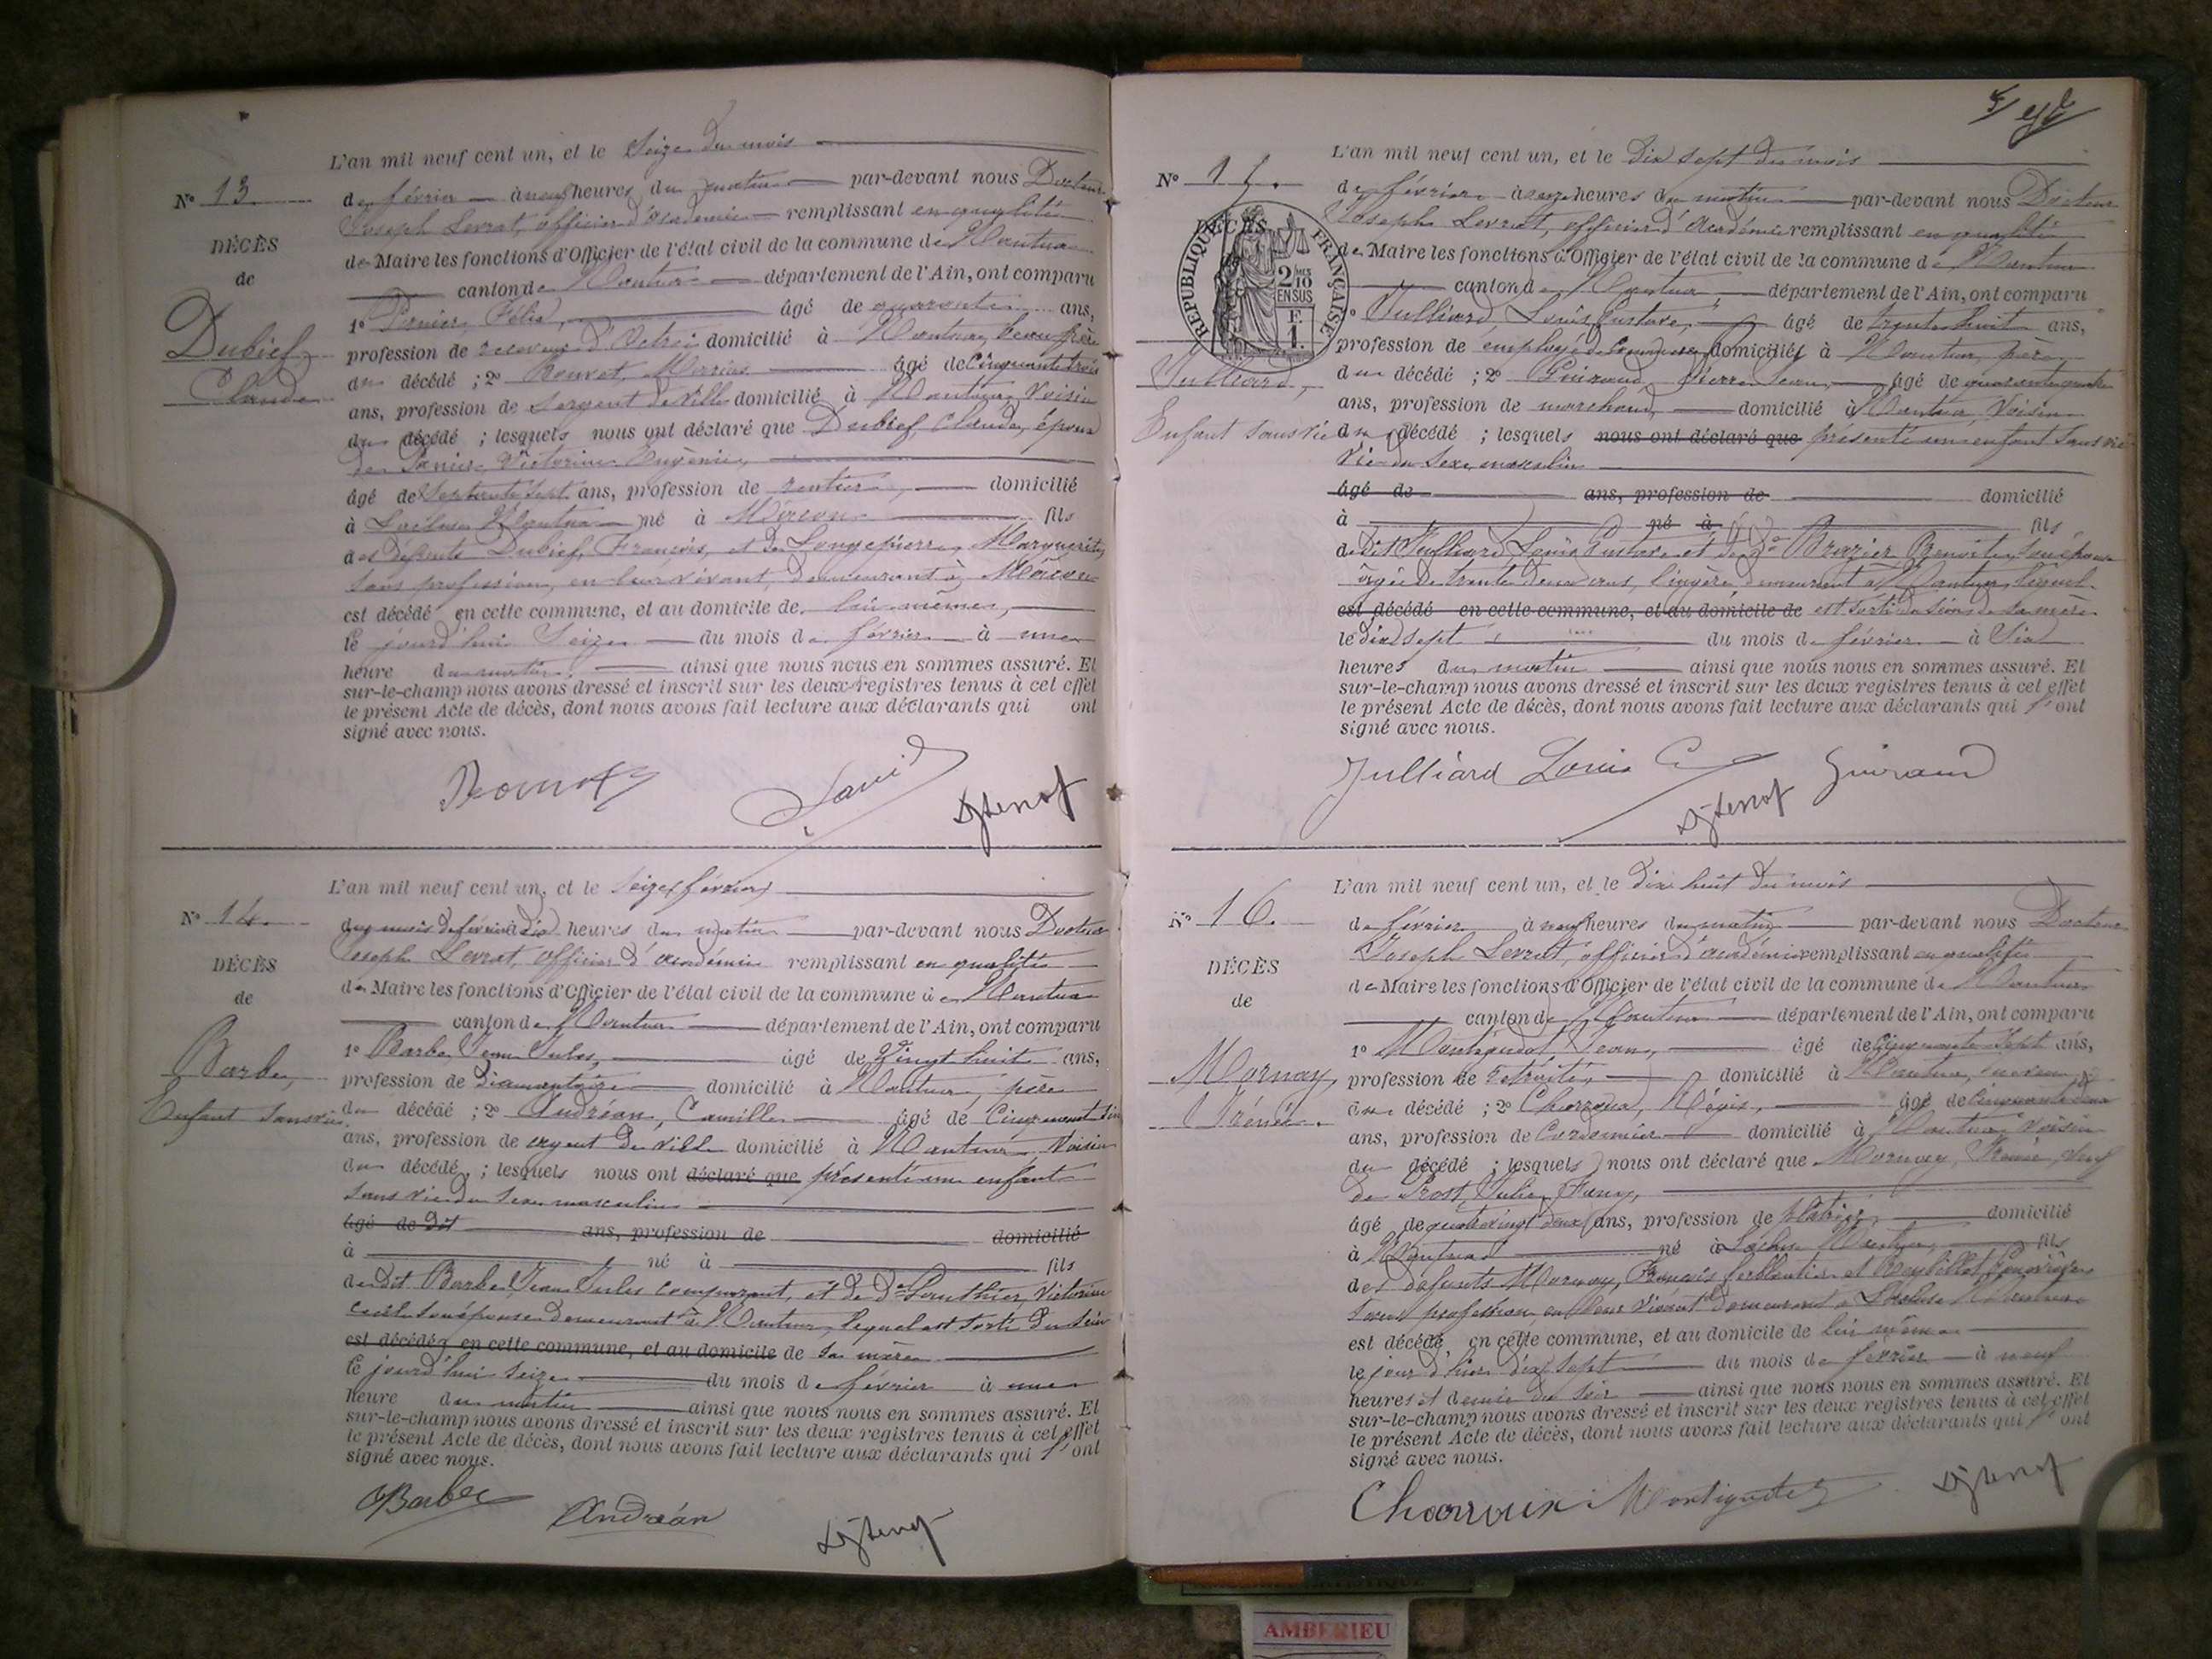 L'an mil neuf cent un, et le Seize du mois
N° 13
de février à neuf heures du matin par-devant nous Docteur
Joseph Levrat, officier d'académie remplissant en qualité
DÉCÈS
de Maire les fonctions d'Officier de l'état civil de la commune de Nantua
de
canton de Nantua département de l'Ain, ont comparu
1° Félix, âgé de quarante ans,
Dubief
profession de receveur d'Octroi domicilié à Nantua, beau frère
Claude
du décédé ; 2° Marius âgé de Cinquante trois
ans, profession de Sergent de Ville domicilié à Nantua Voisin
du décédé ; lesquels nous ont déclaré que Dubief Claude, époux
de Victorine Eugénie,
âgé de Septante sept ans, profession de rentier, domicilié
à Nantua né à Macon fils
des défunts Dubief, François, et de Longepierre, Marguerite,
sans profession, en leur vivant, demeurant à Macon
est décédé en cette commune, et au domicile de lui-même,
le jourd'hui Seize du mois de février à une
heure du matin, ainsi que nous nous en sommes assuré. Et
sur-le-champ nous avons dressé et inscrit sur les deux registres tenus à cet effet
le présent Acte de décès, dont nous avons fait lecture aux déclarants qui ont
signé avec nous.
L'an mil neuf cent un, et le seize février
N° 14
du mois de février à dix heures du matin par-devant nous Docteur
Joseph Levrat, officier d'académie remplissant en qualité
DÉCÈS
de Maire les fonctions d'Officier de l'état civil de la commune de Nantua
de
canton de Nantua département de l'Ain, ont comparu
1° Barbe, Jean Jules, âgé de Vingt huit ans,
Barbe,
profession de Diamantaire domicilié à Nantua, père
Enfant sans vie.
du décédé ; 2° Andréan, Camille âgé de Cinquante
ans, profession de agent de ville domicilié à Nantua, Voisin
du décédé ; lesquels nous ont déclaré que présenté un enfant
sans vie du Sexe masculin
âgé de Dit ans, profession de domicilié
à né à fils
de Dit Barbe, Jean Jules comparant, et de De Victorine
son épouse demeurant à Nantua, lequel est sorti du sein
est décédé, en cette commune, et au domicile de sa mère
le jourd'hui seize du mois de février à une
heure du matin ainsi que nous nous en sommes assuré. Et
sur-le-champ nous avons dressé et inscrit sur les deux registres tenus à cet effet
le présent Acte de décès, dont nous avons fait lecture aux déclarants qui l'ont
signé avec nous.
Barbe Andréan
L'an mil neuf cent un, et le Dix sept du mois
N° 15.
de février à heures du matin par-devant nous Docteur
Joseph Levrat, officier d'Académie remplissant en qualité
DÉCÈS
RÉPUBLIQUE FRANÇAISE
2/10 EN SUS
F. 1.
de Maire les fonctions d'Officier de l'état civil de la commune de Nantua
canton de Nantua, département de l'Ain, ont comparu
1° Julliard, Louis Gustave, âgé de trente huit ans,
profession de employé de Commerce domicilié à Nantua, père
Julliard,
du décédé ; 2° Pierre Jean, âgé de quarante quatre
ans, profession de marchand, domicilié à Nantua, Voisin
Enfant sans vie
du décédé ; lesquels nous ont déclaré que présenté un enfant sans vie
vie du sexe masculin
âgé de ans, profession de domicilié
à né à fils
de Dit Julliard Louis Gustave et de De Brazier Benoite, son épouse
âgée de trente deux ans, demeurant à Nantua, lequel
est décédé en cette commune, et au domicile de est sorti du sein de sa mère
le dix sept du mois de février à Six
heures du matin ainsi que nous nous en sommes assuré. Et
sur-le-champ nous avons dressé et inscrit sur les deux registres tenus à cet effet
le présent Acte de décès, dont nous avons fait lecture aux déclarants qui l'ont
signé avec nous.
Julliard Louis G Guiraud
L'an mil neuf cent un, et le dix huit du mois
N° 16.
de février à neuf heures du matin par-devant nous Docteur
Joseph Levrat, officier d'académie remplissant en qualité
DÉCÈS
de Maire les fonctions d'Officier de l'état civil de la commune de Nantua
de
canton de Nantua département de l'Ain, ont comparu
1° Jean, âgé de Cinquante Sept ans,
Mornay,
profession de retraité, domicilié à Nantua,
Irénée.
du décédé ; 2° Régis, âgé de Cinquante deux
ans, profession de Cordonnier domicilié à Nantua, Voisin
du décédé ; lesquels nous ont déclaré que Mornay, Irénée, veuf
de Prost, Julie, Fany,
âgé de quatre vingt deux ans, profession de plâtrier, domicilié
à Nantua né à Nantua, fils
des défunts Mornay, François ferblantier et Geneviève
sans profession, en leur vivant demeurant à Nantua
est décédé, en cette commune, et au domicile de lui même
le jour d'hier dix sept du mois de février à neuf
heures et demie du soir ainsi que nous nous en sommes assuré. Et
sur-le-champ nous avons dressé et inscrit sur les deux registres tenus à cet effet
le présent Acte de décès, dont nous avons fait lecture aux déclarants qui l'ont
signé avec nous.
Charvoix
AMBERIEU